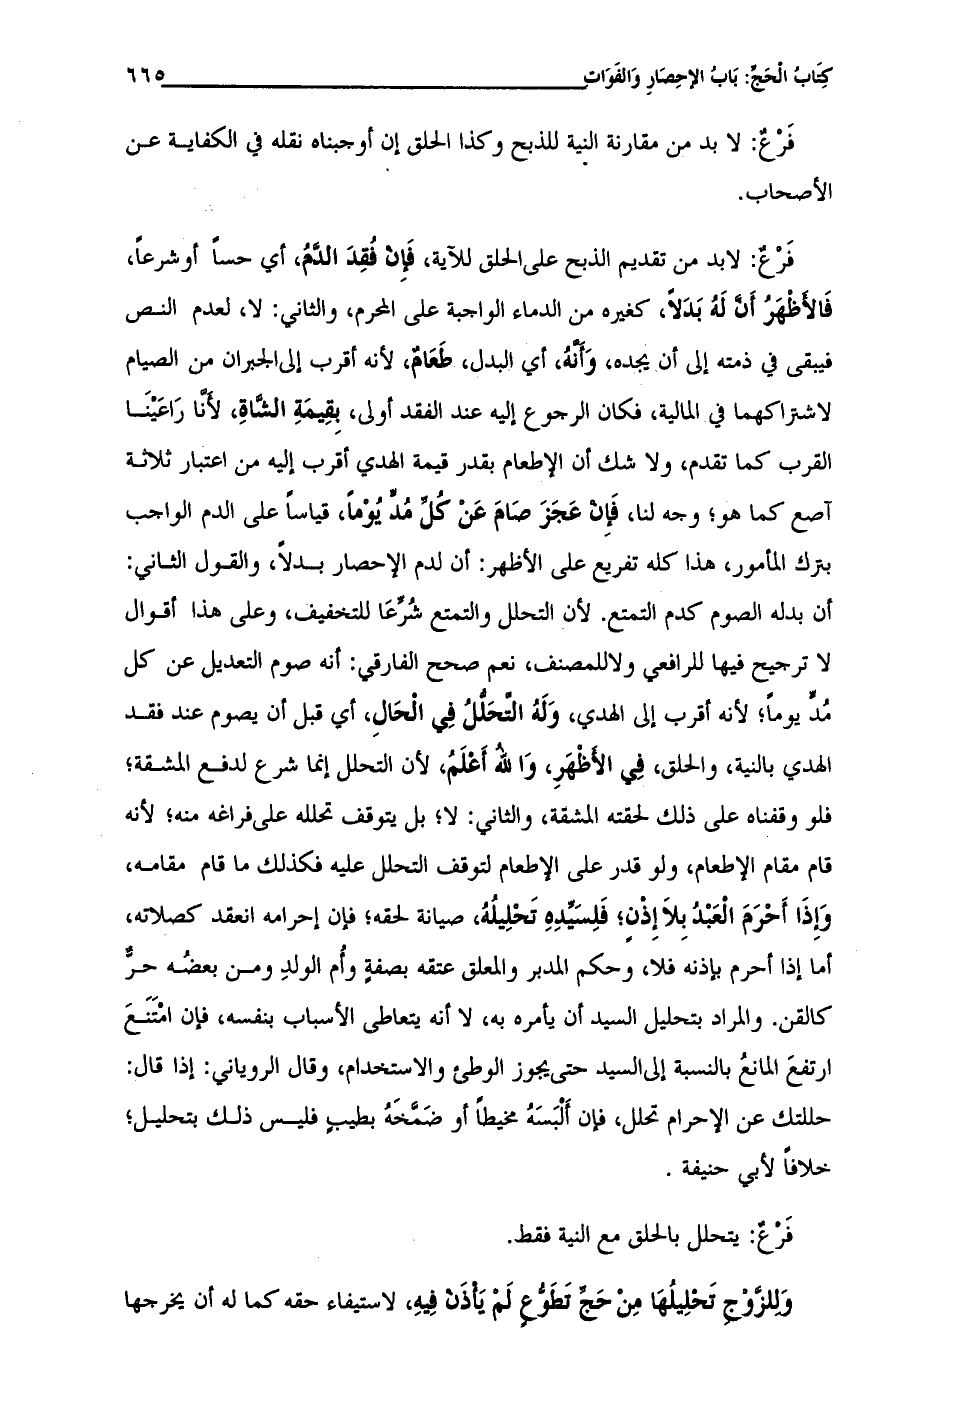 كِتَابُ الْحَجِّ: بَابُ الإحِصَارِ وَالفَوَاتِ ٦٦٥
فَرْعٌ: لا بد من مقارنة النية للذبح وكذا الحلق إن أوجبناه نقله في الكفاية عن
الأصحاب.
فَرْعٌ: لابد من تقديم الذبح على الحلق للآية، فَإِنْ فُقِدَ الدَّمُ، أي حساً أو شرعاً،
فَالأَظْهَرُ أَنَّ لَهُ بَدَلاً، كغيره من الدماء الواجبة على المحرم، والثاني: لا، لعدم النص
فيبقى في ذمته إلى أن يجده، وَأَنَّهُ، أي البدل، طَعَامٌ، لأنه أقرب إلى الجبران من الصيام
لاشتراكهما في المالية، فكان الرجوع إليه عند الفقد أولى، بِقِيمَةِ الشَّاةِ، لأَنَّا رَاعَيْنَا
القرب كما تقدم، ولا شك أن الإطعام بقدر قيمة الهدي أقرب إليه من اعتبار ثلاثة
آصع كما هو؛ وجه لنا، فَإِنْ عَجَزَ صَامَ عَنْ كُلِّ مُدٍّ يَوْماً، قياساً على الدم الواجب
بترك المأمور، هذا كله تفريع على الأظهر: أن لدم الإحصار بدلاً، والقول الثاني:
أن بدله الصوم كدم التمتع. لأن التحلل والتمتع شُرِّعَا للتخفيف، وعلى هذا أقوال
لا ترجيح فيها للرافعي ولا للمصنف، نعم صحح الفارقي: أنه صوم التعديل عن كل
مُدٍّ يوماً؛ لأنه أقرب إلى الهدي، وَلَهُ التَّحَلُّلُ فِي الْحَالِ، أي قبل أن يصوم عند فقد
الهدي بالنية، والحلق، فِي الأَظْهَرِ، وَا للهُ أَعْلَمُ، لأن التحلل إنما شرع لدفع المشقة؛
فلو وقفناه على ذلك لحقته المشقة، والثاني: لا؛ بل يتوقف تحلله على فراغه منه؛ لأنه
قام مقام الإطعام، ولو قدر على الإطعام لتوقف التحلل عليه فكذلك ما قام مقامه،
وَإِذَا أَحْرَمَ الْعَبْدُ بِلاَ إِذْنٍ؛ فَلِسَيِّدِهِ تَحْلِيلُهُ، صيانة لحقه؛ فإن إحرامه انعقد كصلاته،
أما إذا أحرم بإذنه فلا، وحكم المدبر والمعلق عتقه بصفةٍ وأُم الولدِ ومن بعضُه حرٌّ
كالقن. والمراد بتحليل السيد أن يأمره به، لا أنه يتعاطى الأسباب بنفسه، فإن امْتَنَعَ
ارتفعَ المانعُ بالنسبة إلى السيد حتى يجوز الوطئ والاستخدام، وقال الروياني: إذا قال:
حللتك عن الإحرام تحلل، فإن أَلْبَسَهُ مخيطاً أو ضَمَّخَهُ بطيبٍ فليس ذلك بتحليل؛
خلافاً لأبي حنيفة .
فَرْعٌ: يتحلل بالحلق مع النية فقط.
وَلِلزَّوْجِ تَحْلِيلُهَا مِنْ حَجٍّ تَطَوُّعٍ لَمْ يَأْذَنْ فِيهِ، لاستيفاء حقه كما له أن يخرجها